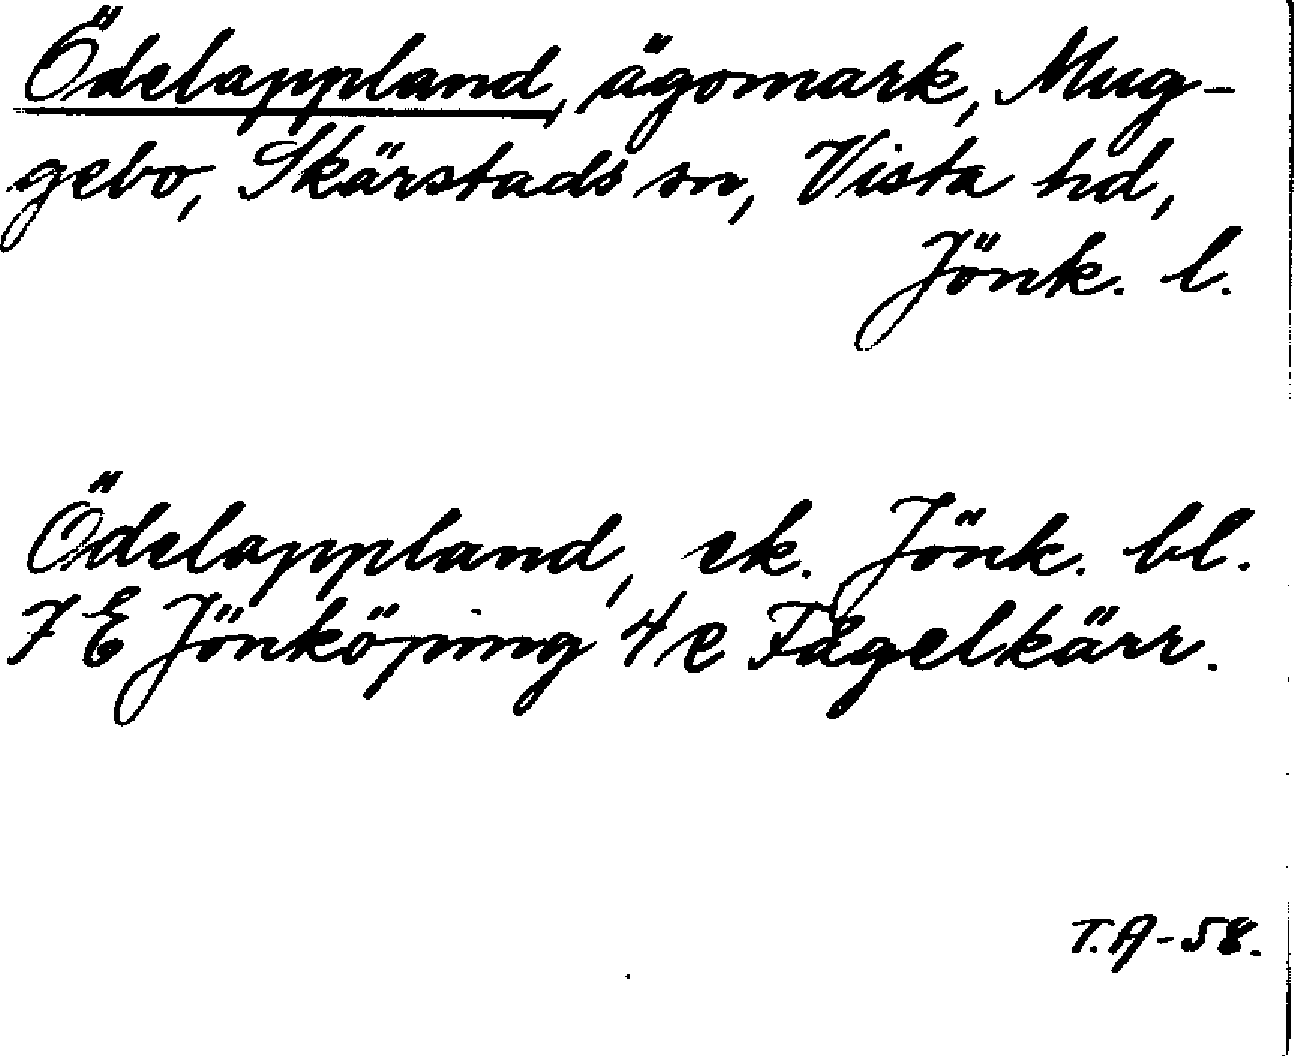 Ödelappland, ägomark, Mug-
gebo, Skärstads sn, Vista hd,
Jönk. l.
Ödelappland, ek. Jönk. bl.
7 E Jönköping 4 e Fågelkärr.
T.A-58.